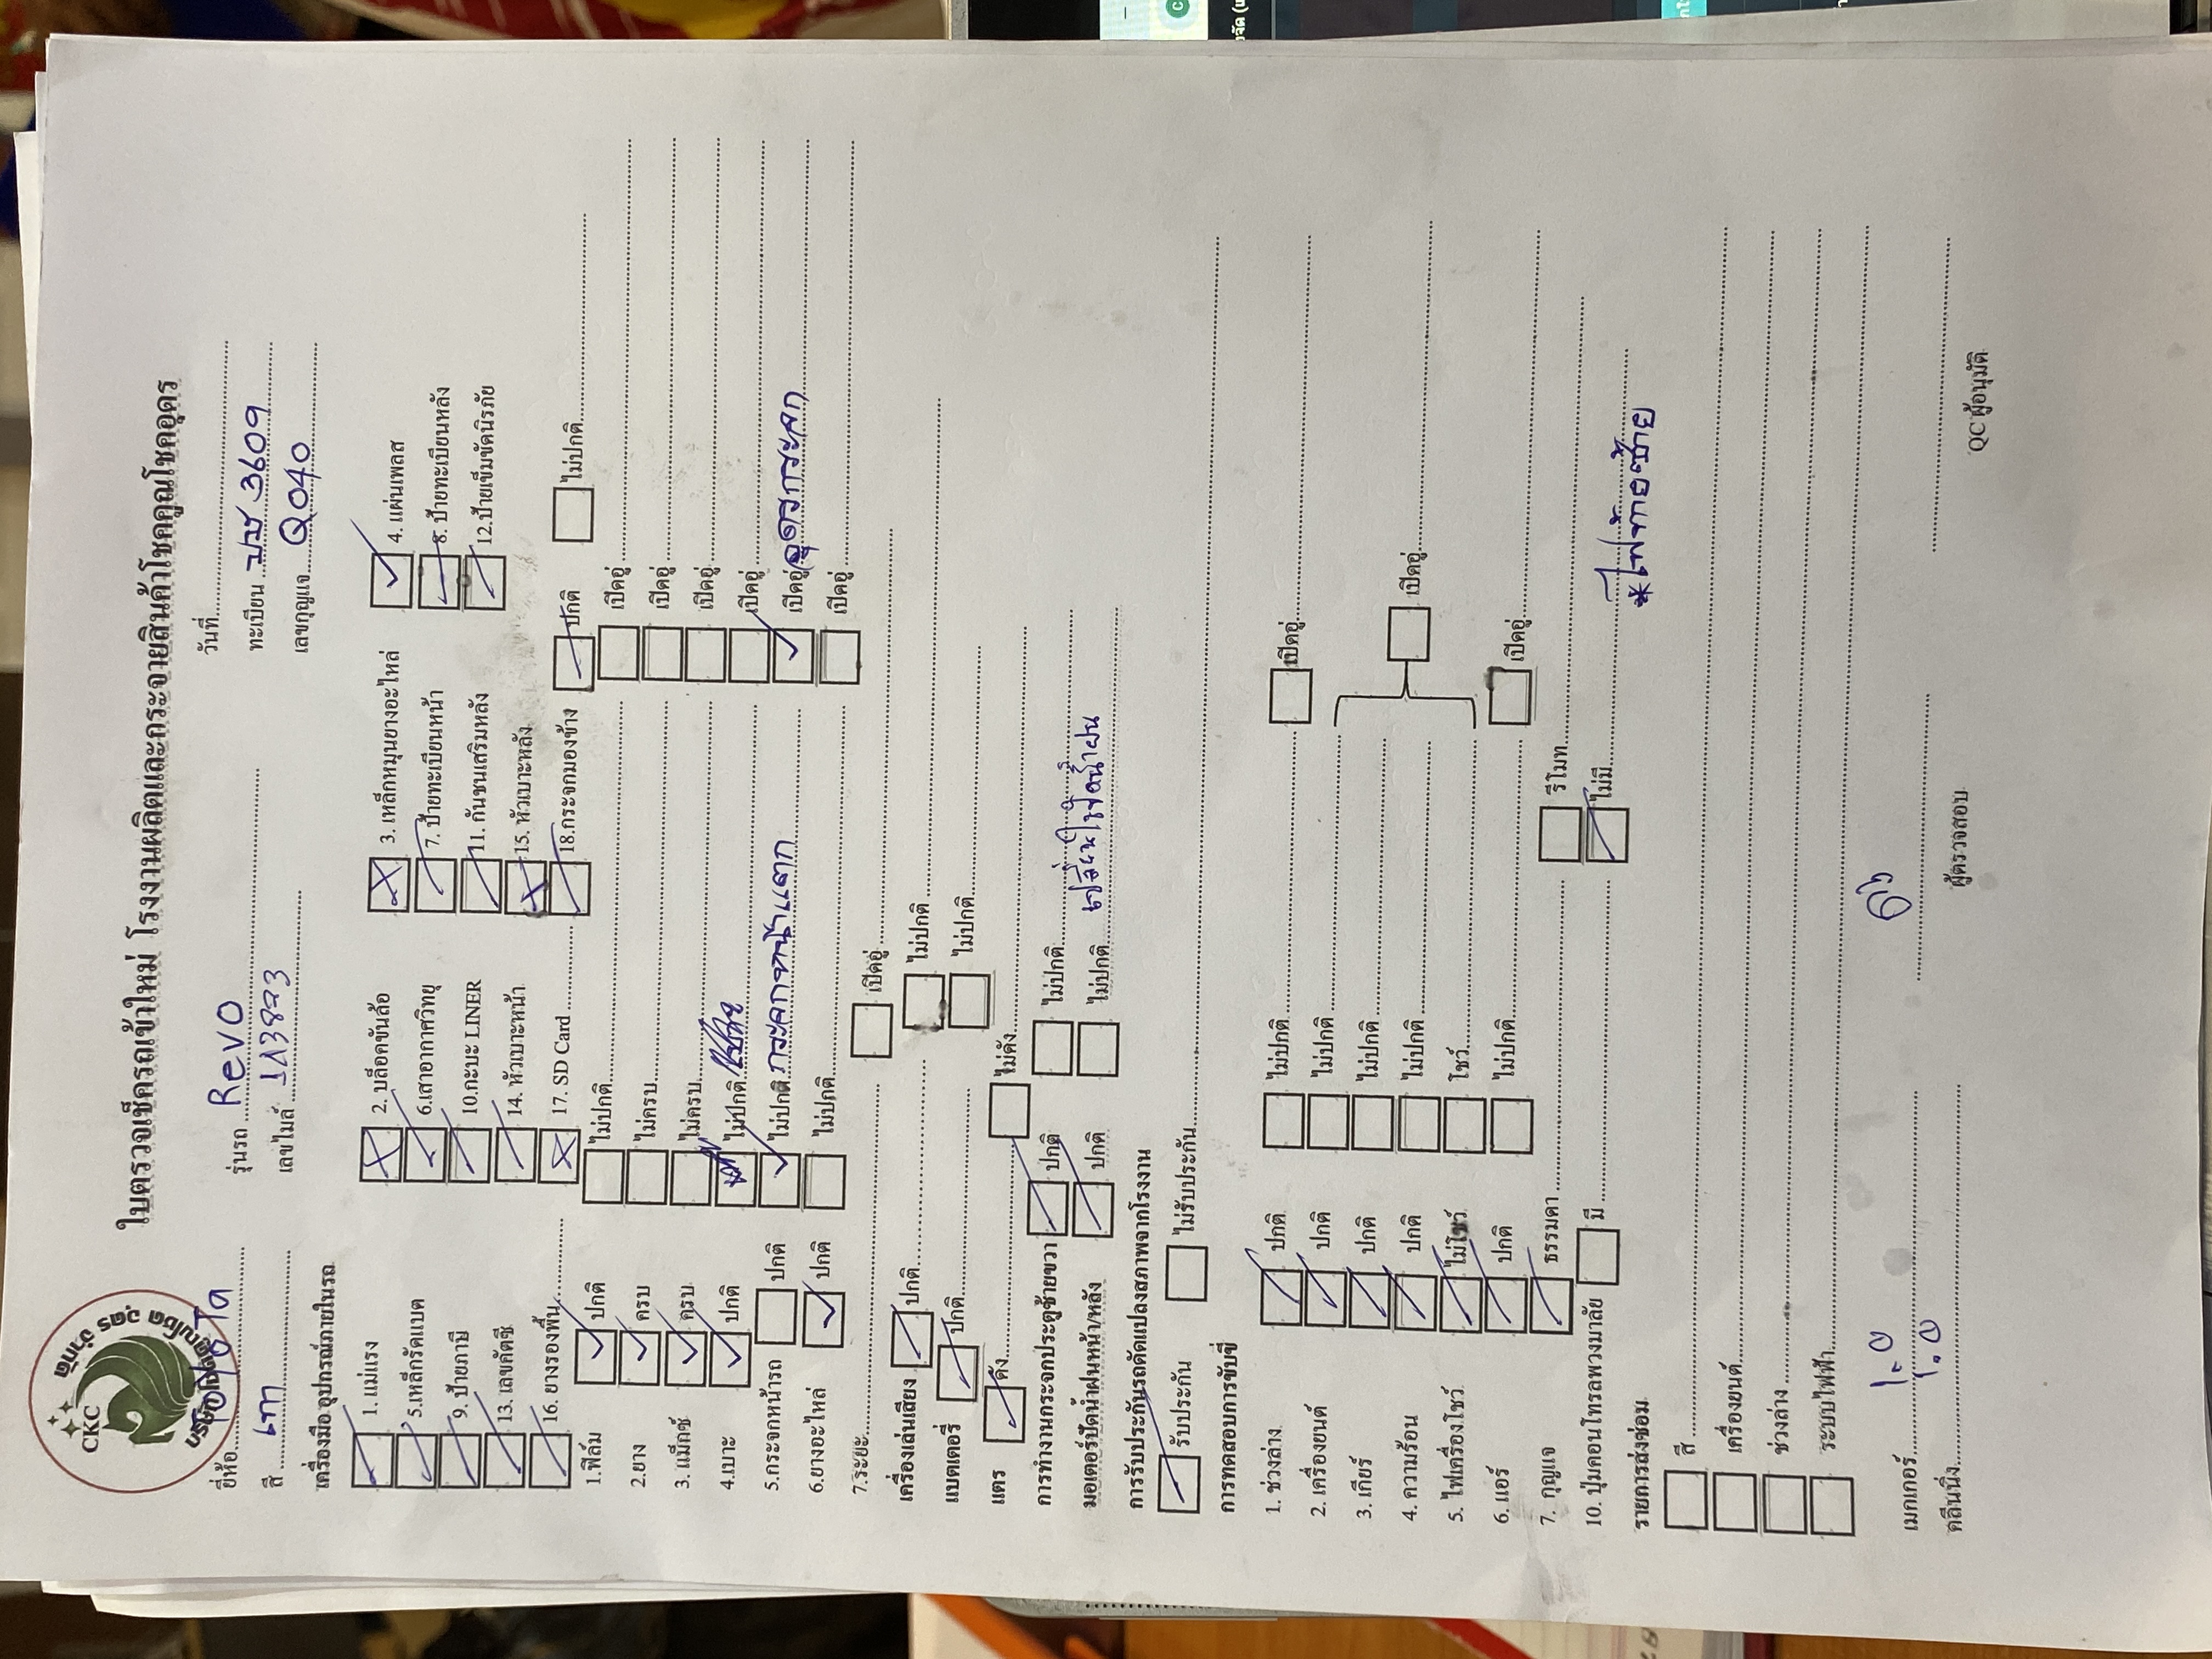 CKC
ใบตรวจเช็ครถเข้าใหม่ โรงงานผลิตและกระจายสินค้าโชคคูณโชคอุดร
วันที่
ยี่ห้อ Toyota รุ่นรถ Revo ทะเบียน 3609
สี เทา เลขไมล์ เลขกุญแจ Q040
เครื่องมือ อุปกรณ์ภายในรถ
1. แม่แรง 2. บล็อคขันล้อ 3. เหล็กหมุนยางอะไหล่ 4. แผ่นเพลส
5.เหล็กรัดแบต 6.เสาอากาศวิทยุ 7. ป้ายทะเบียนหน้า 8. ป้ายทะเบียนหลัง
9. ป้ายภาษี 10.กะบะ LINER 11. กันชนเสริมหลัง 12.ป้ายเข็มขัดนิรภัย
13. เลขคัตซี 14. หัวเบาะหน้า 15. หัวเบาะหลัง
16. ยางรองพื้น 17. SD Card 18.กระจกมองข้าง ปกติ ไม่ปกติ
1.ฟิล์ม ปกติ ไม่ปกติ เปิดอู่
2.ยาง ครบ ไม่ครบ เปิดอู่
3. แม็กซ์ ครบ ไม่ครบ เปิดอู่
4.เบาะ ปกติ ไม่ปกติ เปิดอู่
5.กระจกหน้ารถ ปกติ ไม่ปกติ กระจกหน้าแตก เปิดอู่ อุดรกระจก
6.ยางอะไหล่ ปกติ ไม่ปกติ เปิดอู่
7.ระยะ เปิดอู่
เครื่องเล่นเสียง ปกติ ไม่ปกติ
แบตเตอรี่ ปกติ ไม่ปกติ
แตร ดัง ไม่ดัง
การทำงานกระจกประตูซ้ายขวา ปกติ ไม่ปกติ
มอเตอร์ปัดน้ำฝนหน้า/หลัง ปกติ ไม่ปกติ เปลี่ยนใบปัดน้ำฝน
การรับประกันรถดัดแปลงสภาพจากโรงงาน
รับประกัน ไม่รับประกัน
การทดสอบการขับขี่
1. ช่วงล่าง ปกติ ไม่ปกติ เปิดอู่
2. เครื่องยนต์ ปกติ ไม่ปกติ
3. เกียร์ ปกติ ไม่ปกติ เปิดอู่
4. ความร้อน ปกติ ไม่ปกติ
5. ไฟเครื่องโชว์ ไม่โชว์ โชว์
6. แอร์ ปกติ ไม่ปกติ เปิดอู่
7. กุญแจ ธรรมดา รีโมท
10. ปุ่มคอนโทรลพวงมาลัย มี ไม่มี
*ไฟท้ายซ้าย
รายการส่งซ่อม
สี
เครื่องยนต์
ช่วงล่าง
ระบบไฟฟ้า
เมกเกอร์ 1.0
คลีนนิ่ง 1.0
ผู้ตรวจสอบ QC ผู้อนุมัติ